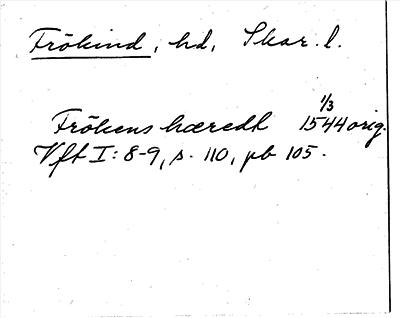 Frökind, hd, Skar. l.
1/3
Frökens hæredh 1544 orig.
Vft I: 8-9, s. 110, pb 105.